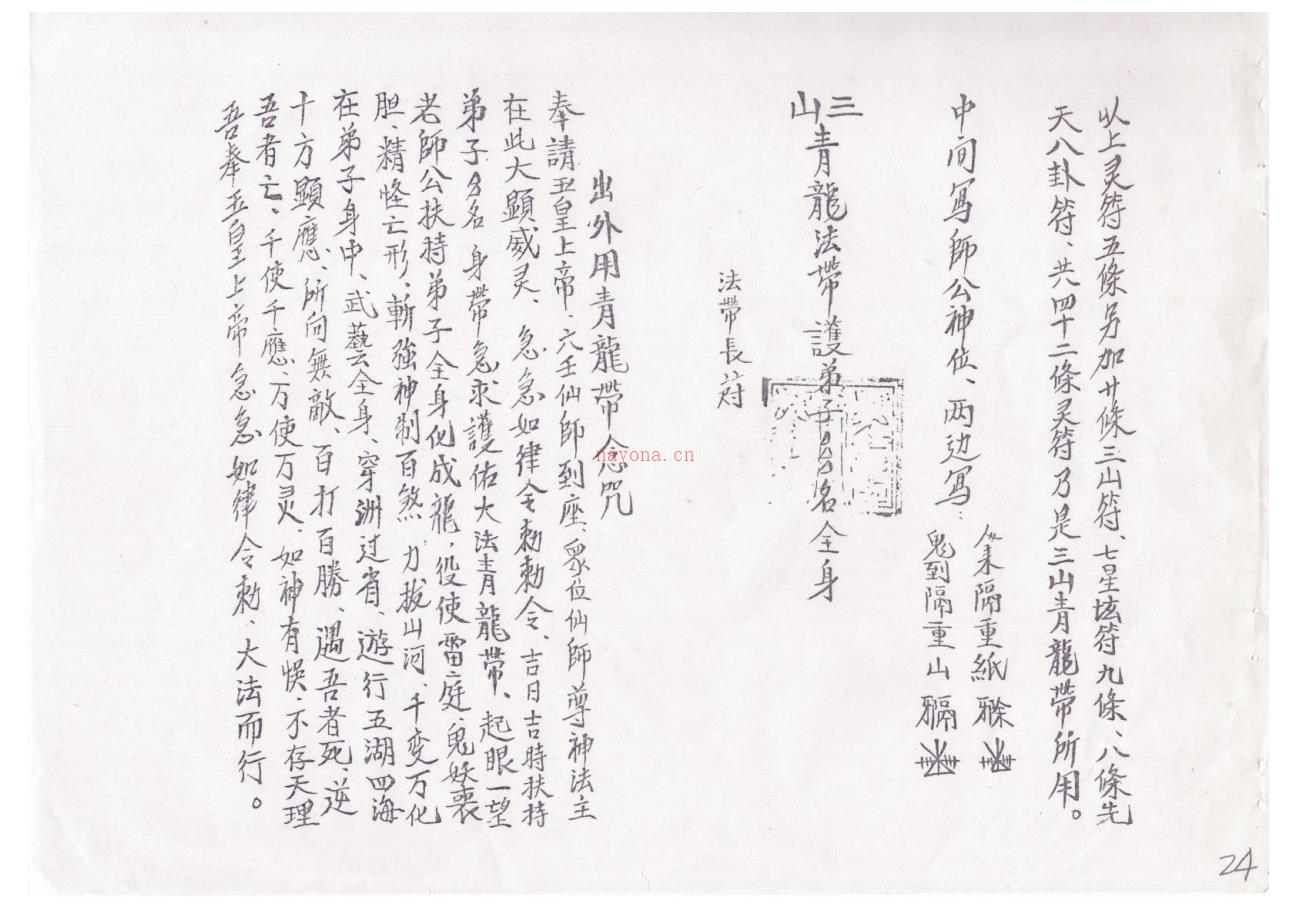 以上灵符五條另加廿條三山符、七星坛符九條、八條先
天八卦符、共四十二條灵符乃是三山青龍帶所用。
中间写師公神位、两边写:
人來隔重紙
鬼到隔重山
三山青龍法帶護弟子ㄙㄙ名全身
法帶長符
出外用青龍帶念咒
奉請玉皇上帝、六壬仙師到座、眾位仙師尊神法主
在此大顯威灵、急急如律令勅勅令、吉日吉時扶持
弟子ㄙ名身帶急求護佑大法青龍帶、起眼一望
老師公扶持弟子全身化成龍,役使雷庭、鬼妖丧
胆、精怪亡形、斬強神制百煞、力拔山河、千变万化
在弟子身中、武藝全身、穿洲过省、遊行五湖四海
十方顯應、所向無敵、百打百勝、遇吾者死、逆
吾者亡、千使千應、万使万灵、如神有悞、不存天理
吾奉玉皇上帝急急如律令勅、大法而行。
nayona.cn
24